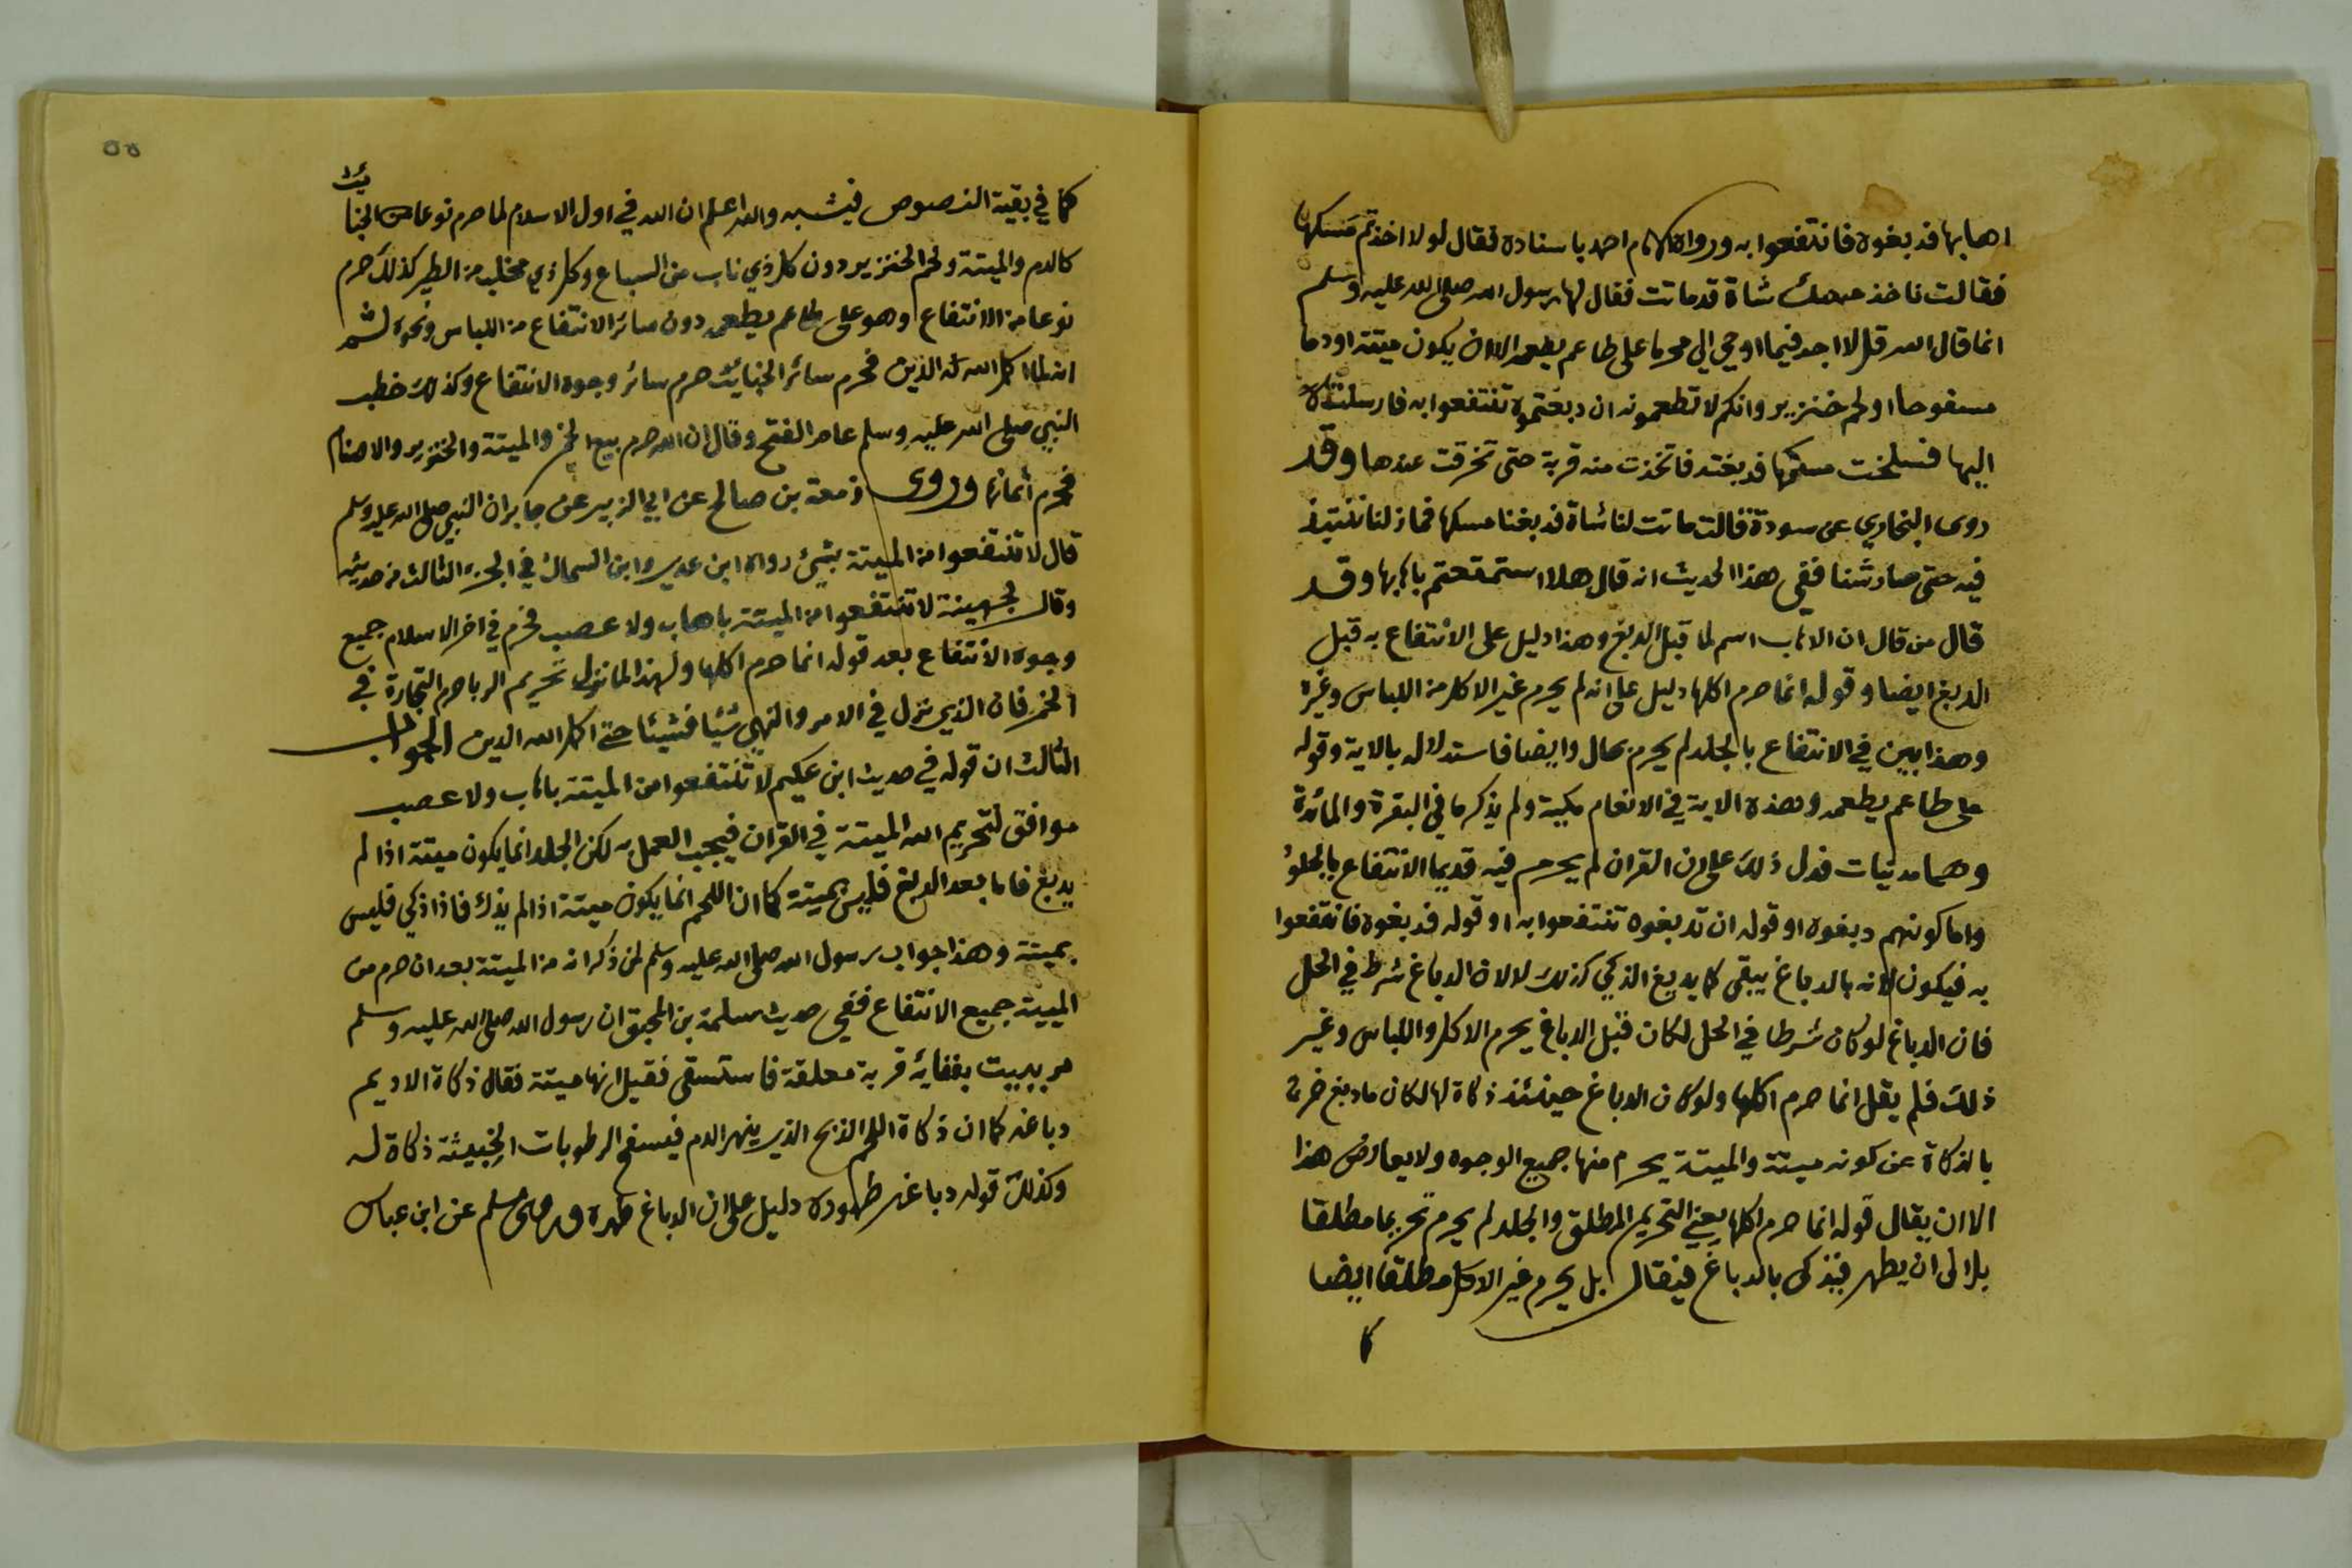 اهابها فدبغوه فانتفعوا به ورواه الامام احمد باسناده فقال لولا اخذتم مسكها
فقالت ناخذ مسك شاة قد ماتت فقال لها رسول الله صلى الله عليه وسلم
انما قال الله قل لا اجد فيما اوحي الي محرما على طاعم يطعمه الا ان يكون ميتة او دما
مسفوحا او لحم خنزير وانكم لا تطعمونه ان دبغتموه تنتفعوا به فارسلت
اليها فسلخت مسكها فدبغته فاتخذت منه قربة حتى تخرقت عندها وقد
روى البخاري عن سودة قالت ماتت لنا شاة فدبغنا مسكها فمازلنا ننتبذ
فيه حتى صار شنا ففي هذا الحديث انه قال هلا استمتعتم باهابها وقد
قال من قال ان الاهاب اسم لما قبل الدبغ وهذا دليل على الانتفاع به قبل
الدبغ ايضا وقوله انما حرم اكلها دليل على انه لم يحرم غير الاكل من اللباس وغيره
وهذا يبين في الانتفاع بالجلد لم يحرم بحال وايضا فاستدلاله بالاية وقوله
على طاعم يطعمه وهذه الاية في الانعام مكية ولم يذكر ما في البقرة والمائدة
وهما مدنيات فدل ذلك على ان القران لم يحرم فيه قديما الانتفاع بالجلود
واما كونهم دبغوه او قوله ان تدبغوه تنتفعوا به او قوله فدبغوه فانتفعوا
به فيكون لانه بالدباغ يبقى كما يدبغ الذكي كذلك لا لان الدباغ شرط في الحل
فان الدباغ لو كان شرطا في الحل لكان قبل الدباغ يحرم الاكل واللباس وغير
ذلك فلم يقل انما حرم اكلها ولو كان الدباغ حينئذ ذكاة لها لكان ما دبغ خرج
بالذكاة عن كونه ميتة والميتة يحرم منها جميع الوجوه ولا يعارض هذا
الا ان يقال قوله انما حرم اكلها يعني التحريم المطلق والجلد لم يحرم تحريما مطلقا
بل الى ان يطهر فيذكى بالدباغ فيقال بل يحرم غير الاكل مطلقا ايضا
كما
٥٥
كما في بقية النصوص فيشبه والله اعلم ان الله في اول الاسلام لما حرم نوعا من الخبائث
كالدم والميتة ولحم الخنزير دون كل ذي ناب من السباع وكل ذي مخلب من الطير كذلك حرم
نوعا من الانتفاع وهو على طاعم يطعمه دون سائر الانتفاع من اللباس ونحوه ثم
انه لما اكمل الله الدين فحرم سائر الخبائث حرم سائر وجوه الانتفاع وكذلك خطب
النبي صلى الله عليه وسلم عام الفتح وقال ان الله حرم بيع الخمر والميتة والخنزير والاصنام
فحرم اثمانها وروى زمعة بن صالح عن ابي الزبير عن جابر ان النبي صلى الله عليه وسلم
قال لا تنتفعوا من الميتة بشيئ رواه ابن عدي وابن السماك في الجزء الثالث من حديثه
وقال لجهينة لا تنتفعوا من الميتة باهاب ولا عصب فحرم في اخر الاسلام جميع
وجوه الانتفاع بعد قوله انما حرم اكلها ولهذا لما نزل تحريم الربا حرم التجارة في
الخمر فان الذي نزل في الامر والنهي شيئا فشيئا حتى اكمل الله الدين الجواب
الثالث ان قوله في حديث ابن عكيم لا تنتفعوا من الميتة باهاب ولا عصب
موافق لتحريم الله الميتة في القران فيجب العمل به لكن الجلد انما يكون ميتة اذا لم
يدبغ فاما بعد الدبغ فليس بميتة كما ان اللحم انما يكون ميتة اذا لم يذك فاذا ذكي فليس
بميتة وهذا جواب رسول الله صلى الله عليه وسلم لمن ذكر انه من الميتة بعد ان حرم من
الميتة جميع الانتفاع ففي حديث سلمة بن المحبق ان رسول الله صلى الله عليه وسلم
مر ببيت بفنائه قربة معلقة فاستسقى فقيل انها ميتة فقال ذكاة الاديم
دباغه كما ان ذكاة اللحم الذبح الذي ينهر الدم فيسفح الرطوبات الخبيثة ذكاة له
وكذلك قوله دباغه طهوره دليل على ان الدباغ طهره وروى مسلم عن ابن عباس